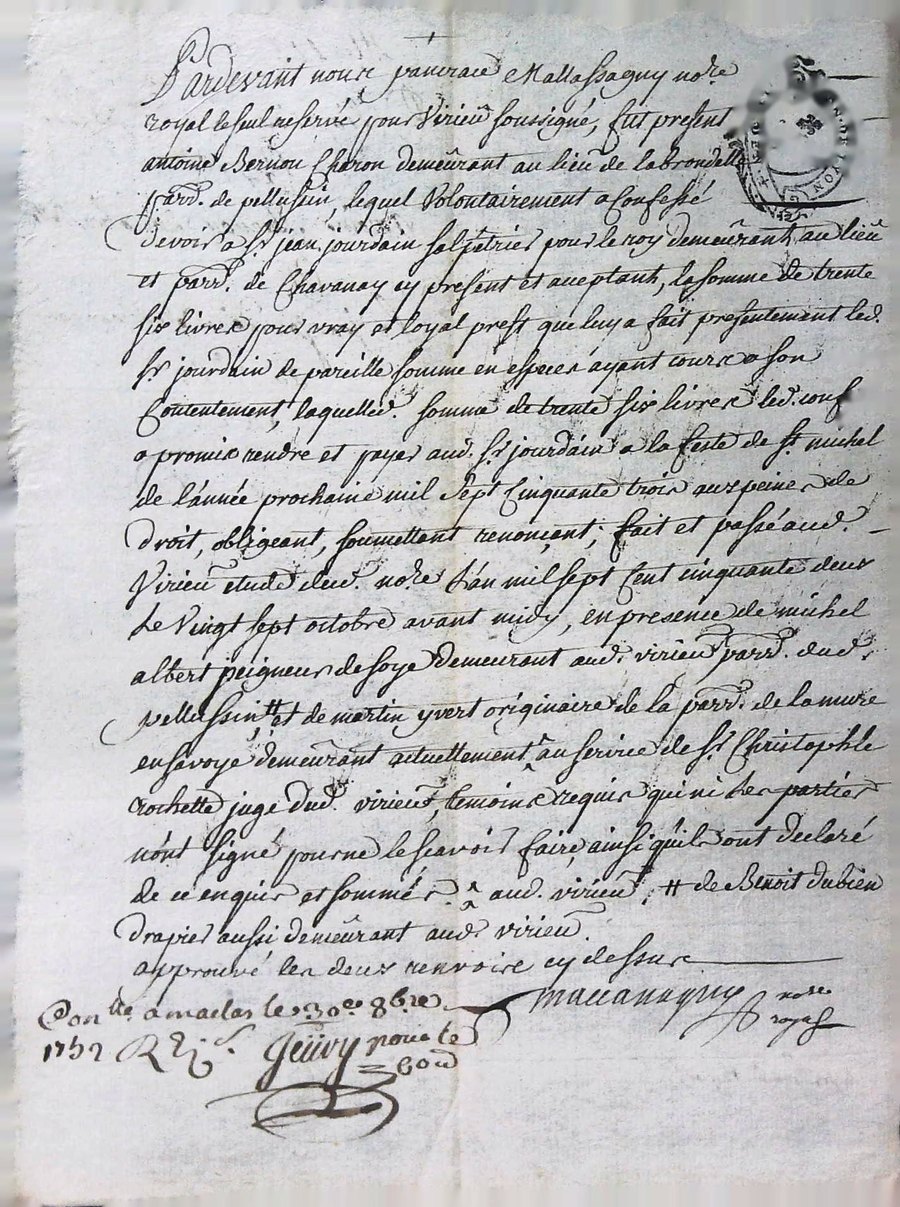 Pardevant nous pancrace Mallassagny no.re
royal le seul reservé pour Virieu soussigné, fut present
antoine Bernou Charon demeurant au lieu de la brondelle
parr.e de pellussin, lequel Volontairement a Confessé
devoir a S.r jean jourdain salpetrier pour le roy demeurant au lieu
et parr.e de Chavanay cy present et aceptant, la somme de trente
six livres pour vray et loyal prest que luy a fait presentement led.
S.r jourdain de pareille somme en especes ayant cours a son
Contentement, laquelle d. somme de trente six livres led. conf
a promis rendre et payer aud. S.r jourdain a la feste de S.t michel
de l'année prochaine mil Sept Cinquante trois aux peines de
droit, obligeant, soumettant renonçant, fait et passé aud.
Virieu etude dud. no.re L'an mil sept Cent cinquante deux
Le Vingt sept octobre avant midy, en presence de michel
albert peigneur de soye demeurant aud. virieu parr.e dud.
pellussin # et de martin yvert originaire de la parr.e de la mure
en savoye demeurant actuellement ^ au service de S.r Christophle
rochette juge dud. virieu, temoins requis qui ni les parties
n'ont signé pour ne le scavoir faire, ainsi qu'ils ont declaré
de ce enquis et sommés. ^ aud. virieu, # de Benoit dubien
drapier aussi demeurant aud. virieu.
approuvé les deux renvoirs cy dessus
mallassagny no.re
royal
Con.lle a maclas le 30.e 8bre
1752 R